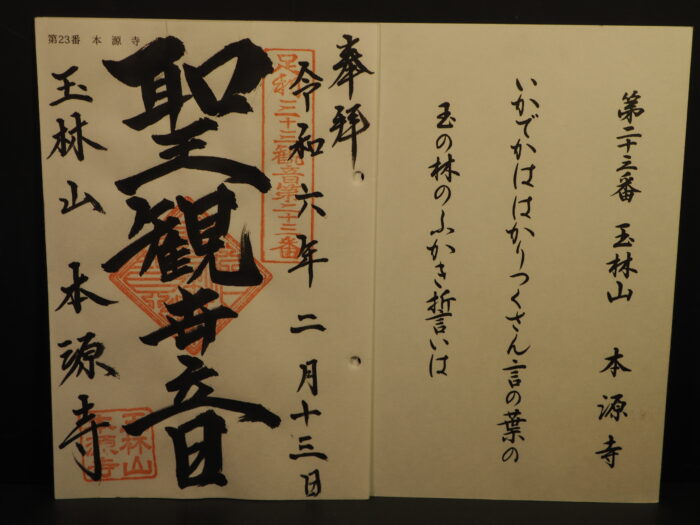 第二十三番 玉林山 本源寺
いかでかははかりつくさん言の葉の
玉の林のふかき誓いは
奉拝
令和六年二月十三日
足利三十三観音第二十三番
聖観世音
第23番 本 源 寺
玉林山 本源寺
玉林山
本源寺